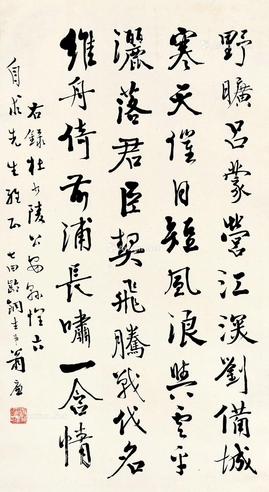 野曠呂蒙營江深劉備城
寒天催日短風浪與雲平
灑落君臣契飛騰戰伐名
維舟倚前浦長嘯一含情
右錄杜少陵公安縣懷古
自求先生雅正 齡銅士翁廉